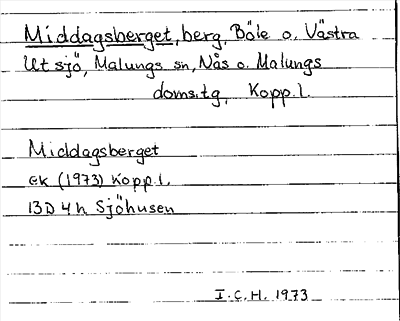 Middagsberget, berg, Böle o. Västra
Utsjö, Malungs sn, Nås o. Malungs
doms.tg, Kopp.l.
Middagsberget
GK (1973) Kopp.l.
13D 4h Sjöhusen
I.C.H. 1973